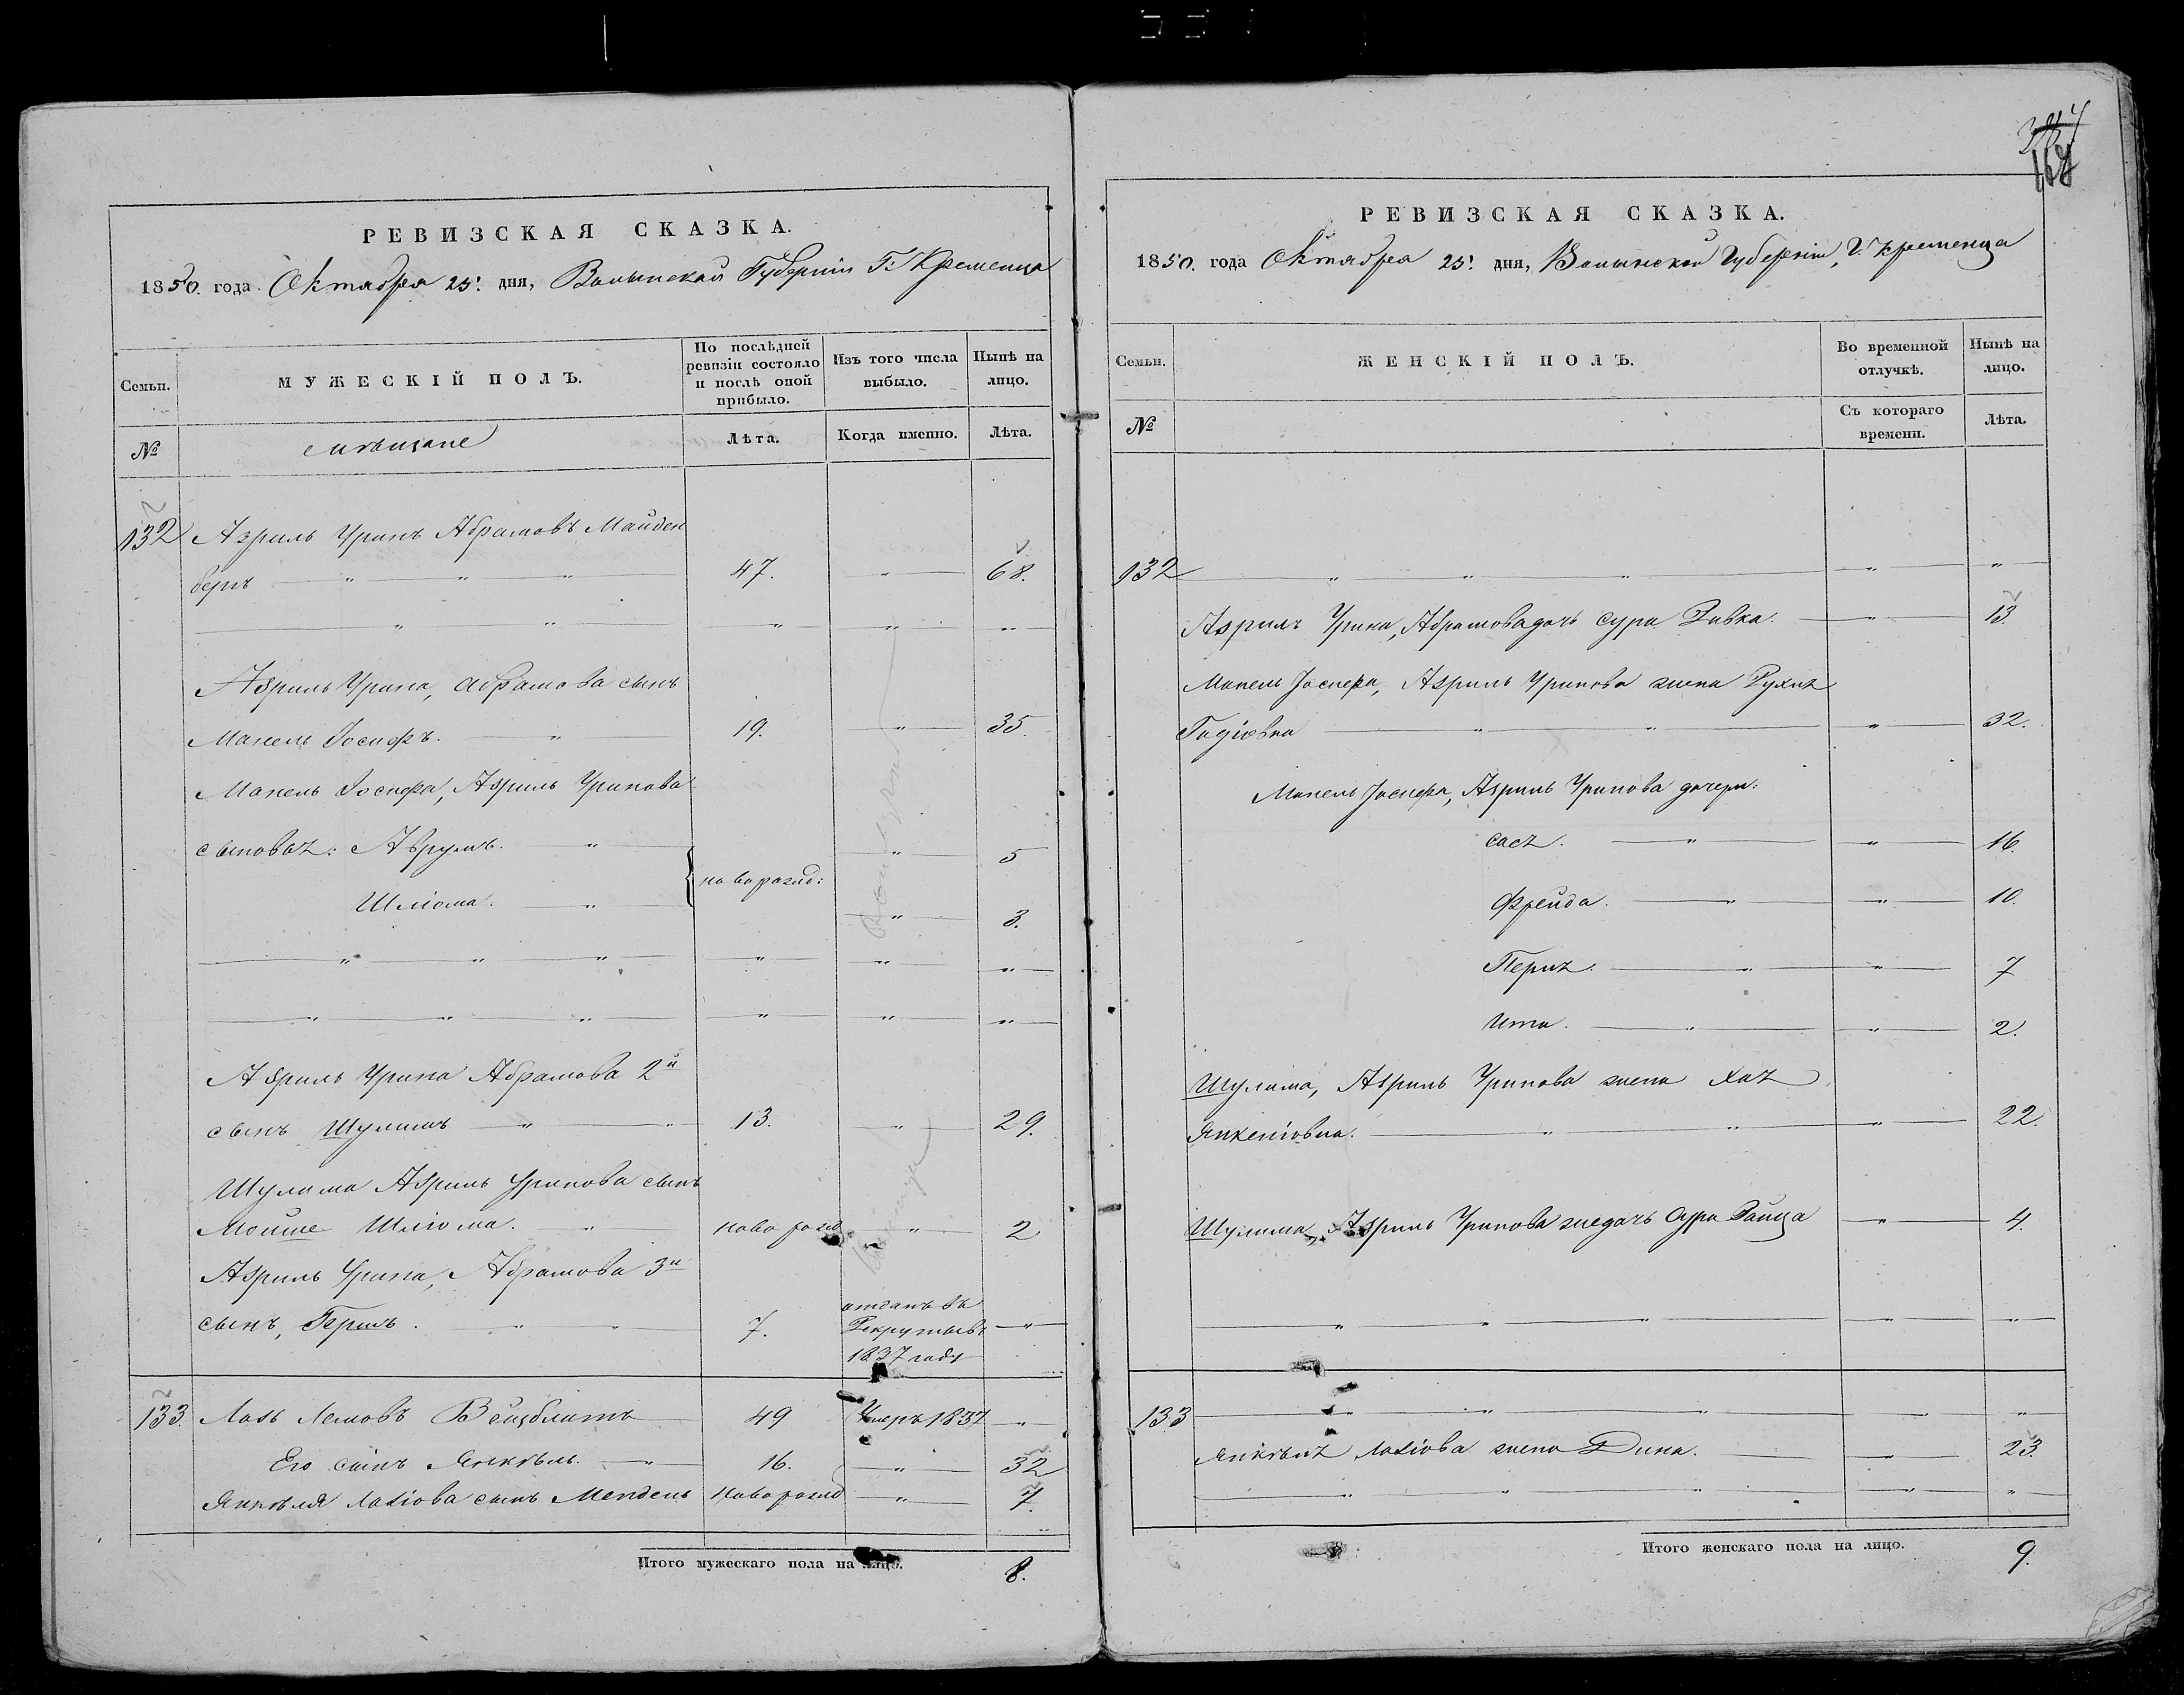 РЕВИЗСКАЯ СКАЗКА.
1850. года Октября 25. дня, Волынской Губерніи Г. Кременца
Семьи.
МУЖЕСКІЙ ПОЛЪ.
По послѣдней ревизіи состояло и послѣ оной прибыло.
Изъ того числа выбыло.
Нынѣ на лицо.
№
мѣщане
Лѣта.
Когда именно.
Лѣта.
132 Азриль Уринъ Абрамовъ Майден
беръ " " " 47. " 68.
" " " " "
Азриль Урина, Абрамова сынъ
Манель Іосифъ. " 19. " 35.
Манель Іосифа, Азриль Уринова
сыновья: Аврумъ. " " 5
новорожд:
Шліома. " " 3.
" " " " " "
" " " " " "
Азриль Урина Абрамова 2й
сынъ Шулимъ " " 13. " 29.
Шулима Азриль Уринова сынъ
Мойше Шліома. " новорожд. " 2
Азриль Урина, Абрамова 3й
сынъ, Берль. " " 7. отданъ въ Рекруты въ 1837 году "
133. Лазь Лемовъ Вейцблитъ 49 Умеръ 1837 "
Его сынъ Янкѣль. " 16. " 32
Янкѣля Лазіова сынъ Мендель Новорожд " 7.
Итого мужескаго пола на лицо. 8.
168
РЕВИЗСКАЯ СКАЗКА.
1850. года Октября 25. дня, Волынской Губерніи, Г. Кременца
Семьи.
ЖЕНСКІЙ ПОЛЪ.
Во временной отлучкѣ.
Нынѣ на лицо.
№
Съ котораго времени.
Лѣта.
132 " " " " "
Азриль Урина, Абрамова дочь Сура Ривка. " 13.
Манель Іосифа, Азриль Уринова жена Рухля
Гадіовна " " " 32.
Манель Іосифа, Азриль Уринова дочери:
Сася. " " 16.
Фрейда. " " 10.
Перля. " " 7
Ита. " " 2.
Шулима, Азриль Уринова жена Хая
Янкеліовна. " " " 22.
Шулима, Азриль Уринова же дочь Сура Райца " 4.
" " " " "
133 " " " " "
Янкѣля Лазіова жена Дина. " 23.
" " " " "
Итого женскаго пола на лицо. 9.